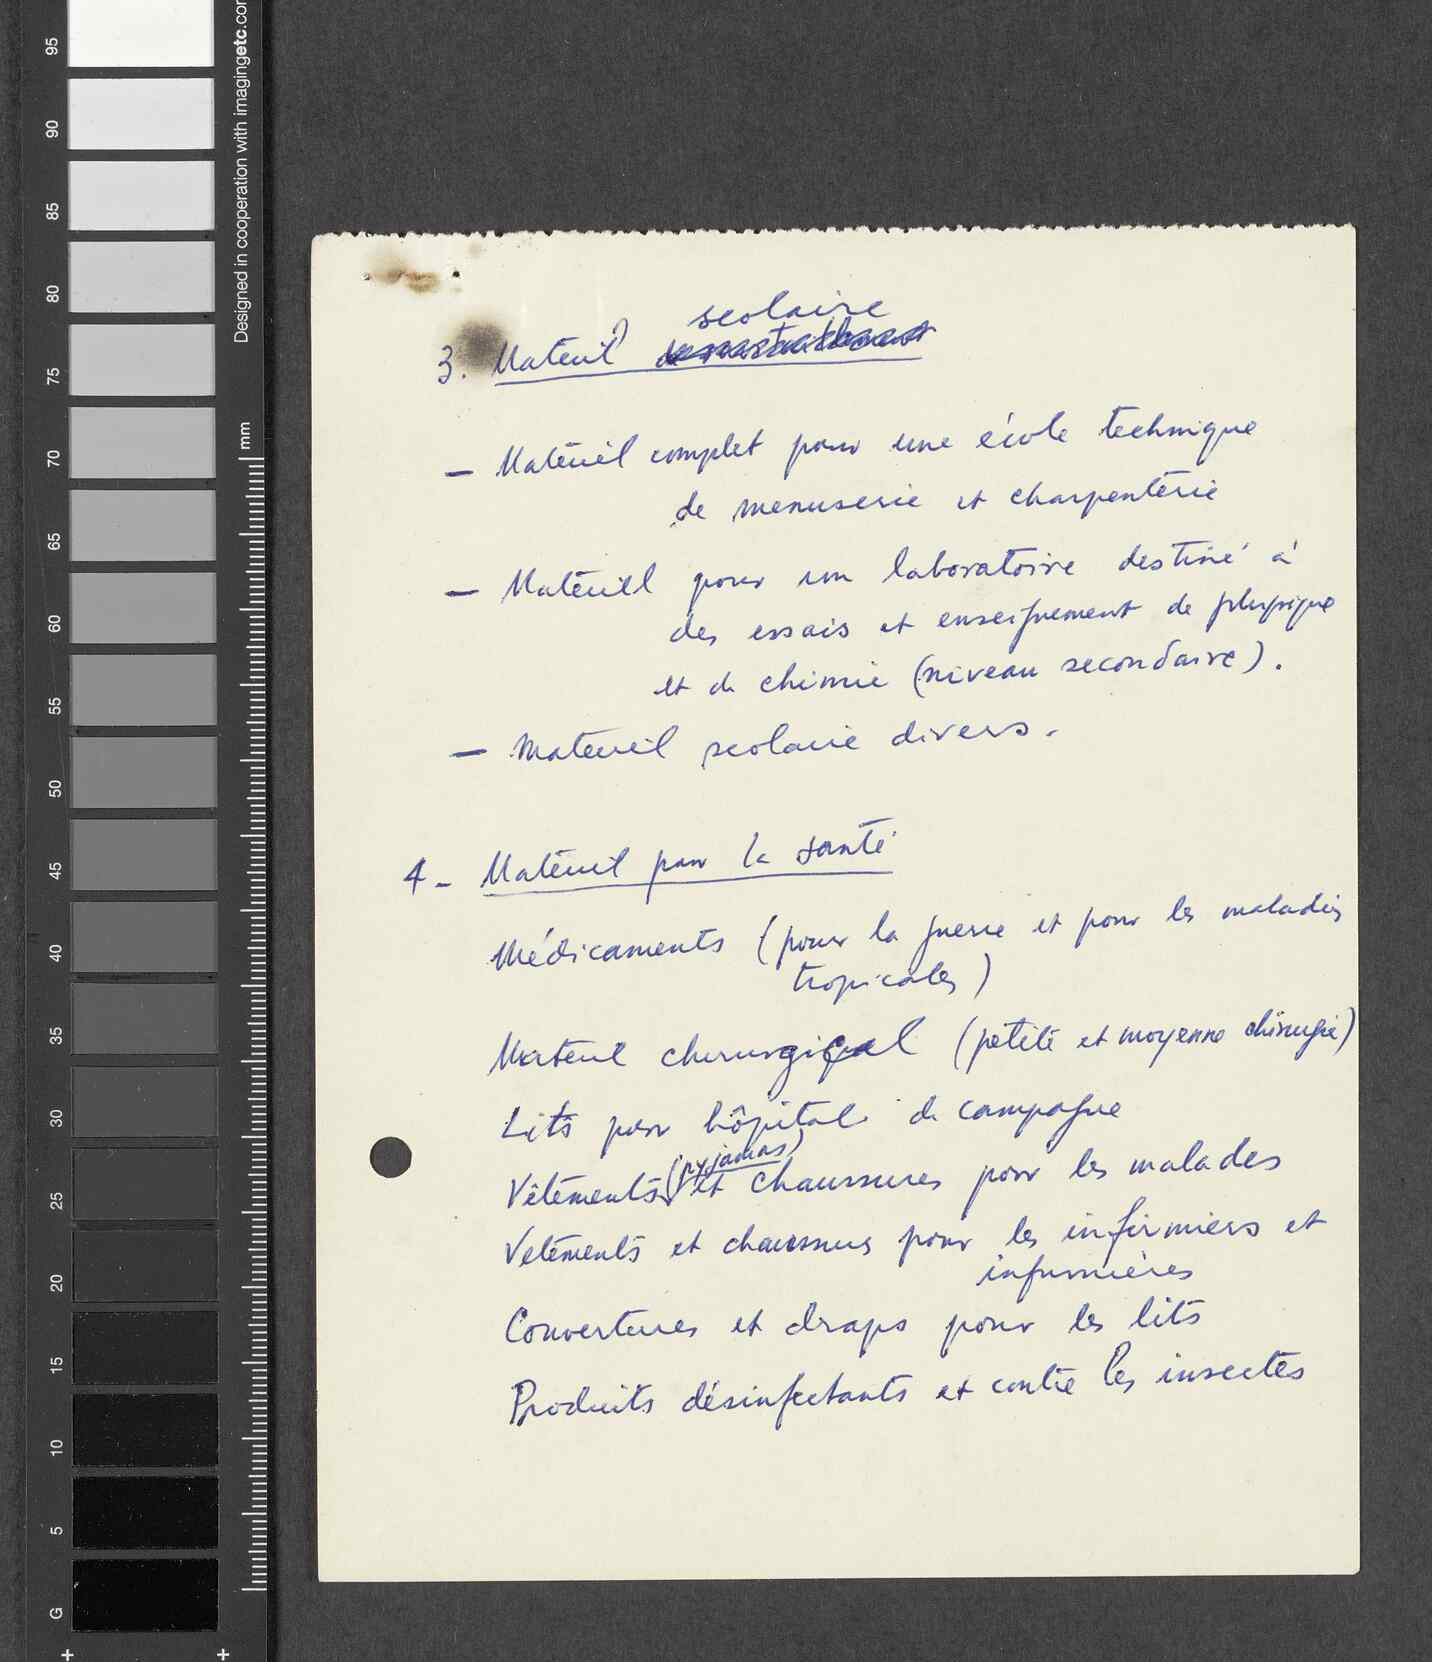 95
90
85
80
75
70
65
60
55
50
45
40
35
30
25
20
15
10
5
G
Designed in cooperation with imagingetc.com
mm
scolaire
3. Matériel
— Matériel complet pour une école technique
de menuserie et charpenterie
— Matériel pour un laboratoire destiné à
des essais et enseignement de physique
et de chimie (niveau secondaire).
— Materiel scolaire divers.
4 - Matériel pour la santé
Médicaments (pour la guerre et pour les maladies
tropicales)
Matériel chirurgical (petite et moyenne chirurgie)
Lits pour hôpital de campagne
(pyjamas)
Vêtements et chaussures pour les malades
Vetements et chaussures pour les infirmiers et
infirmières
Couvertures et draps pour les lits
Produits désinfectants et contre les insectes